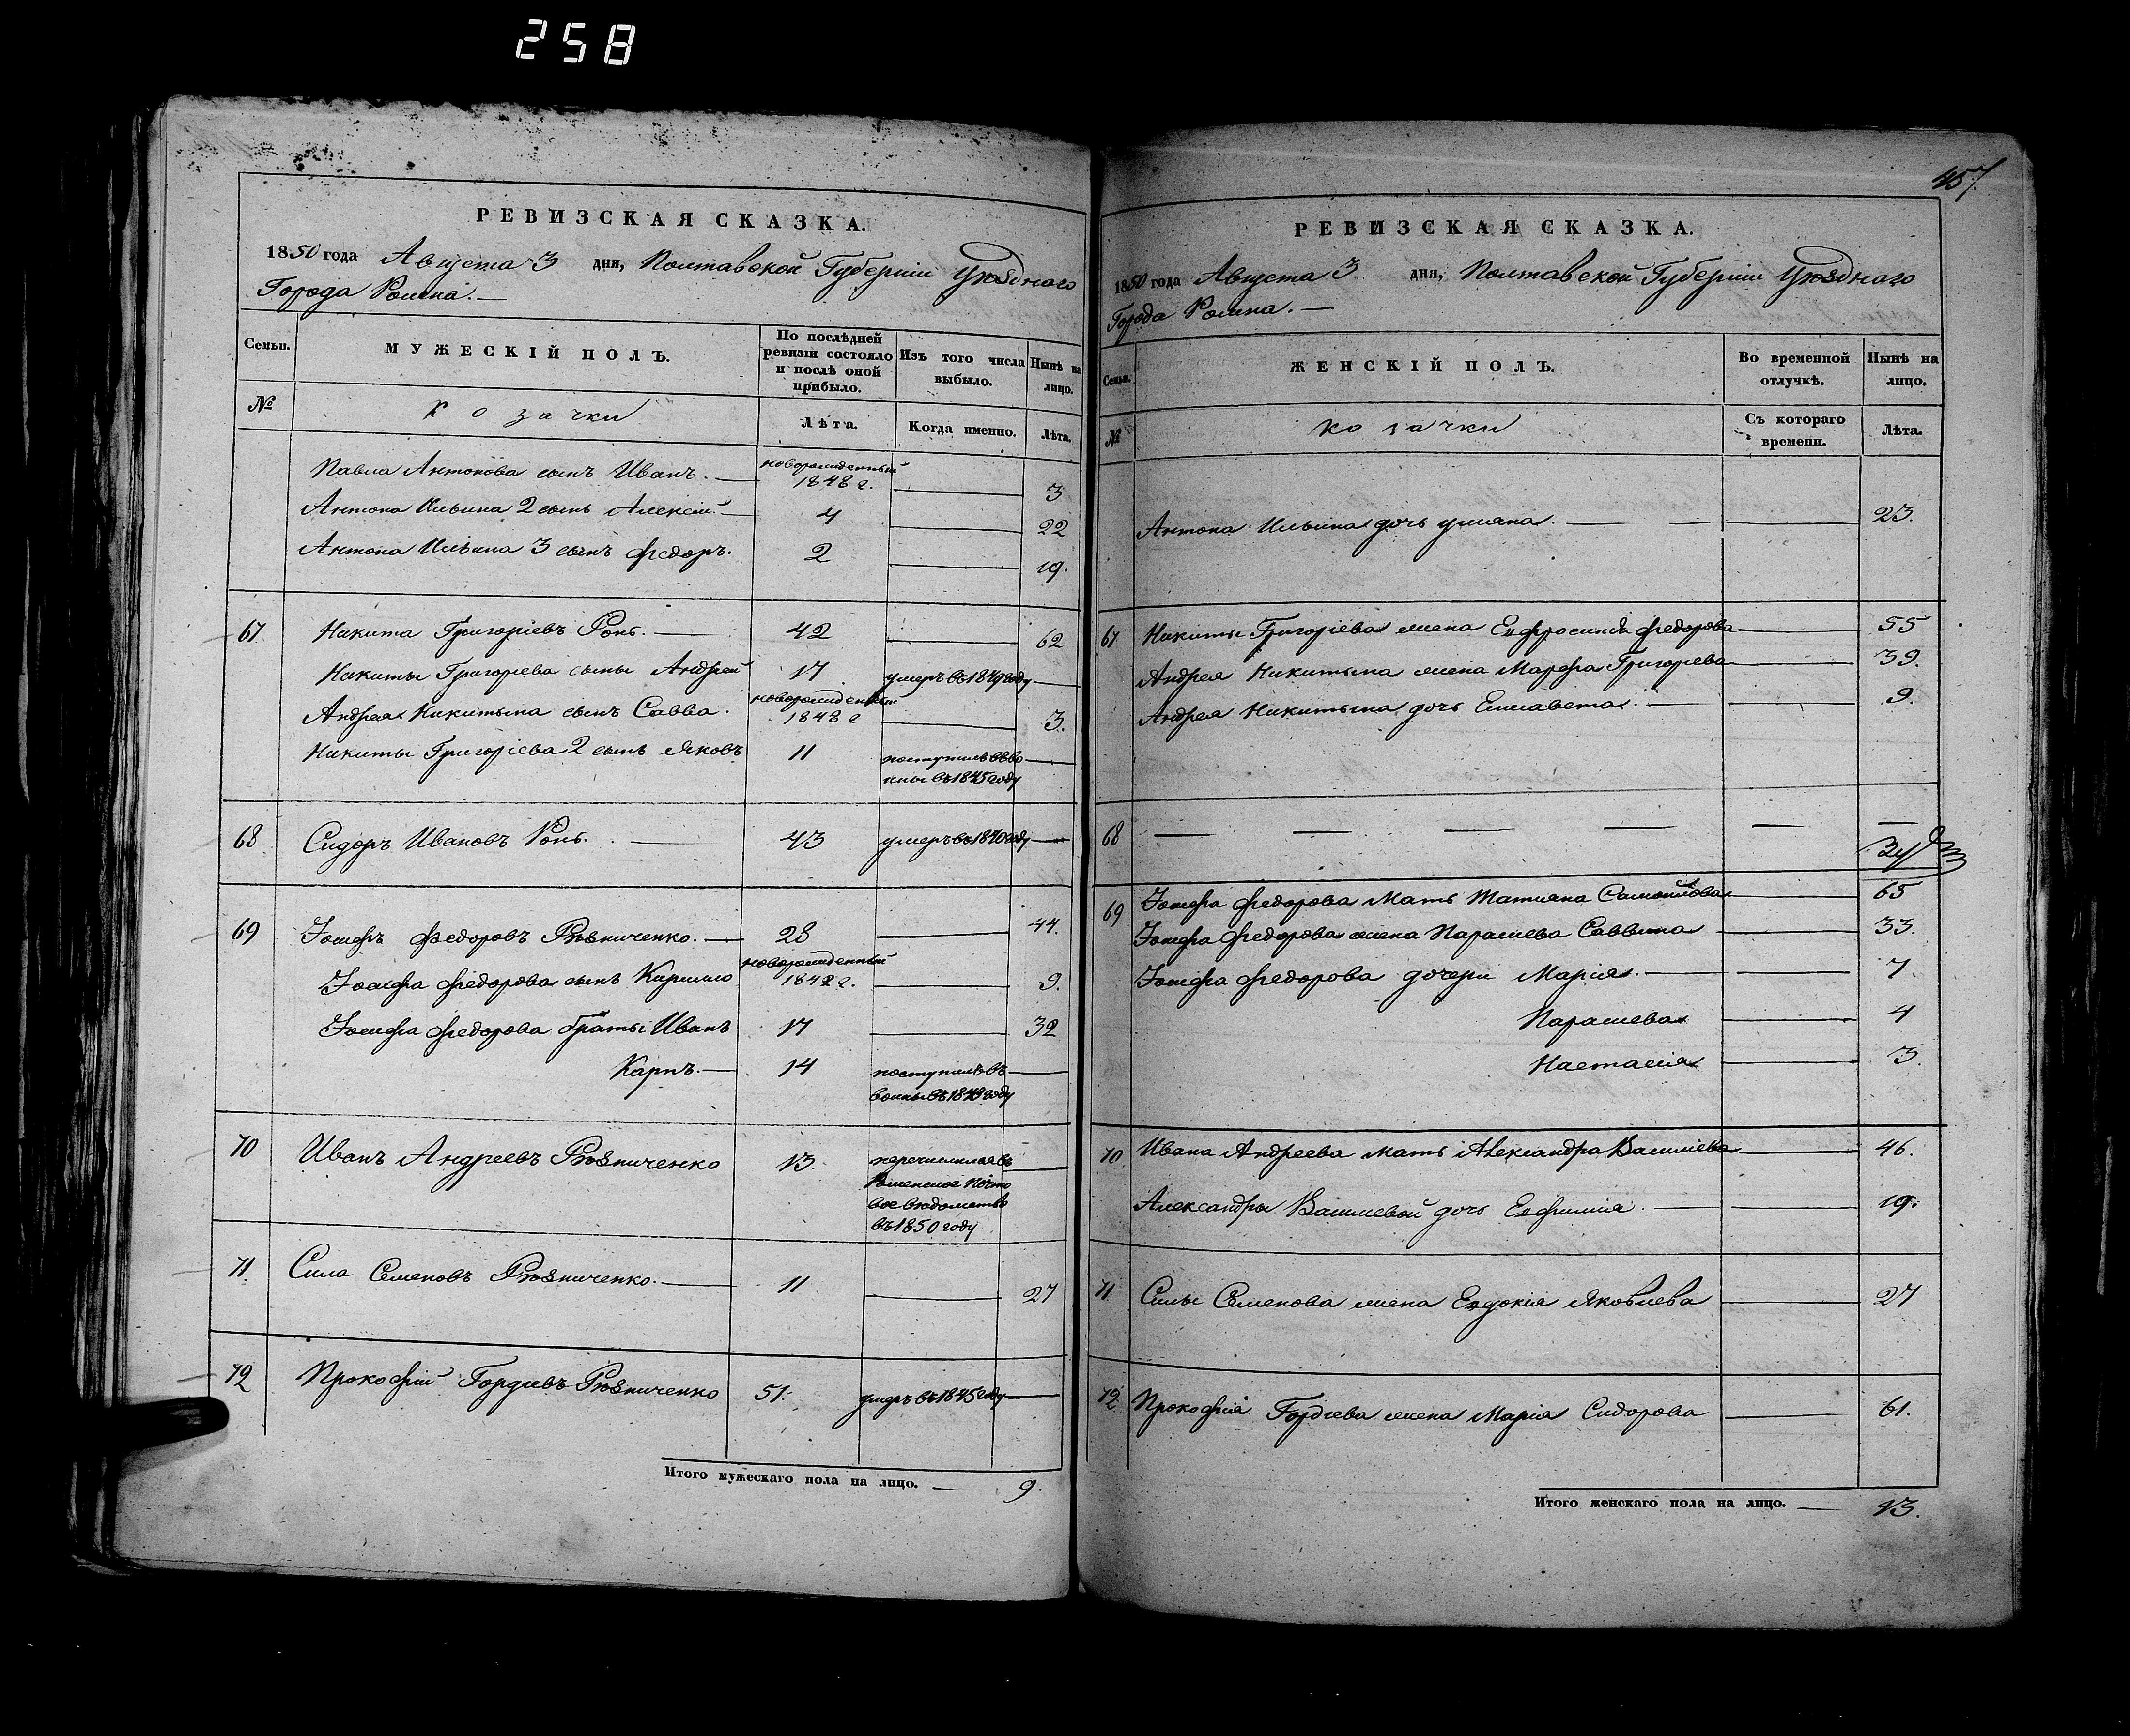 258
РЕВИЗСКАЯ СКАЗКА.
1850 года Августа 3 дня, Полтавской Губерніи Уѣзднаго
Города Ромна. —
Семьи. МУЖЕСКІЙ ПОЛЪ. По послѣдней ревизіи состояло и послѣ оной прибыло. Изъ того числа выбыло. Нынѣ на лицо.
№ козачки Лѣта. Когда именно. Лѣта.
Павла Антонова сынъ Иванъ. — новорожденный 1848 г. — 3
Антона Ильина 2 сынъ Алексій. — 4 — 22
Антона Ильина 3 сынъ Федоръ. 2 — 19.
67. Никита Григоріевъ Ропь. — 42 — 62
Никиты Григоріева сыны Андрей 17 умеръ въ 1849 году —
Андрея Никитина сынъ Савва. новорожденный 1848 г — 3.
Никиты Григоріева 2 сынъ Яковъ 11 поступилъ въ во
ины въ 1845 году —
68 Сидоръ Ивановъ Ропь. — 43 умеръ въ 1840 году —
69 Іосифъ Федоровъ Рѣзниченко. — 28 — 44.
Іосифа Федорова сынъ Кирилло новорожденный 1842 г. — 9.
Іосифа Федорова братья Иванъ 17 — 32
Карпъ. — 14 поступилъ въ
воины въ 1840 году —
70 Иванъ Андреевъ Рѣзниченко 13 перечислился въ
Роменское Почто
вое вѣдомство
въ 1850 году —
71. Сила Семеновъ Рѣзниченко. — 11 — 27
72 Прокофій Гордѣевъ Рѣзниченко 51. умеръ въ 1845 году —
Итого мужескаго пола на лицо. — 9.
457.
РЕВИЗСКАЯ СКАЗКА.
1850 года Августа 3 дня, Полтавской Губерніи Уѣзднаго
Города Ромна. —
Семьи. ЖЕНСКІЙ ПОЛЪ. Во временной отлучкѣ. Нынѣ на лицо.
№ козачки Съ котораго времени. Лѣта.
Антона Ильина дочь Уліяна. — — 23.
67 Никиты Григоріева жена Евфросинія Федорова — 55
Андрея Никитина жена Марфа Григорьева — 39.
Андрея Никитина дочь Елисавета. — — 9.
68 — — — — — —
69 Іосифа Федорова Мать Татіана Самойлова — 65
Іосифа Федорова жена Параскева Саввина — 33.
Іосифа Федорова дочери Марія. — — 7
Параскева — 4
Настасія — 3
70 Ивана Андреева мать Александра Василіева — 46.
Александры Василіевой дочь Евфимія. — — 19.
71 Силы Семенова жена Евдокія Яковлева — 27
72. Прокофія Гордѣева жена Марія Сидорова — 61.
Итого женскаго пола на лицо. — 13.